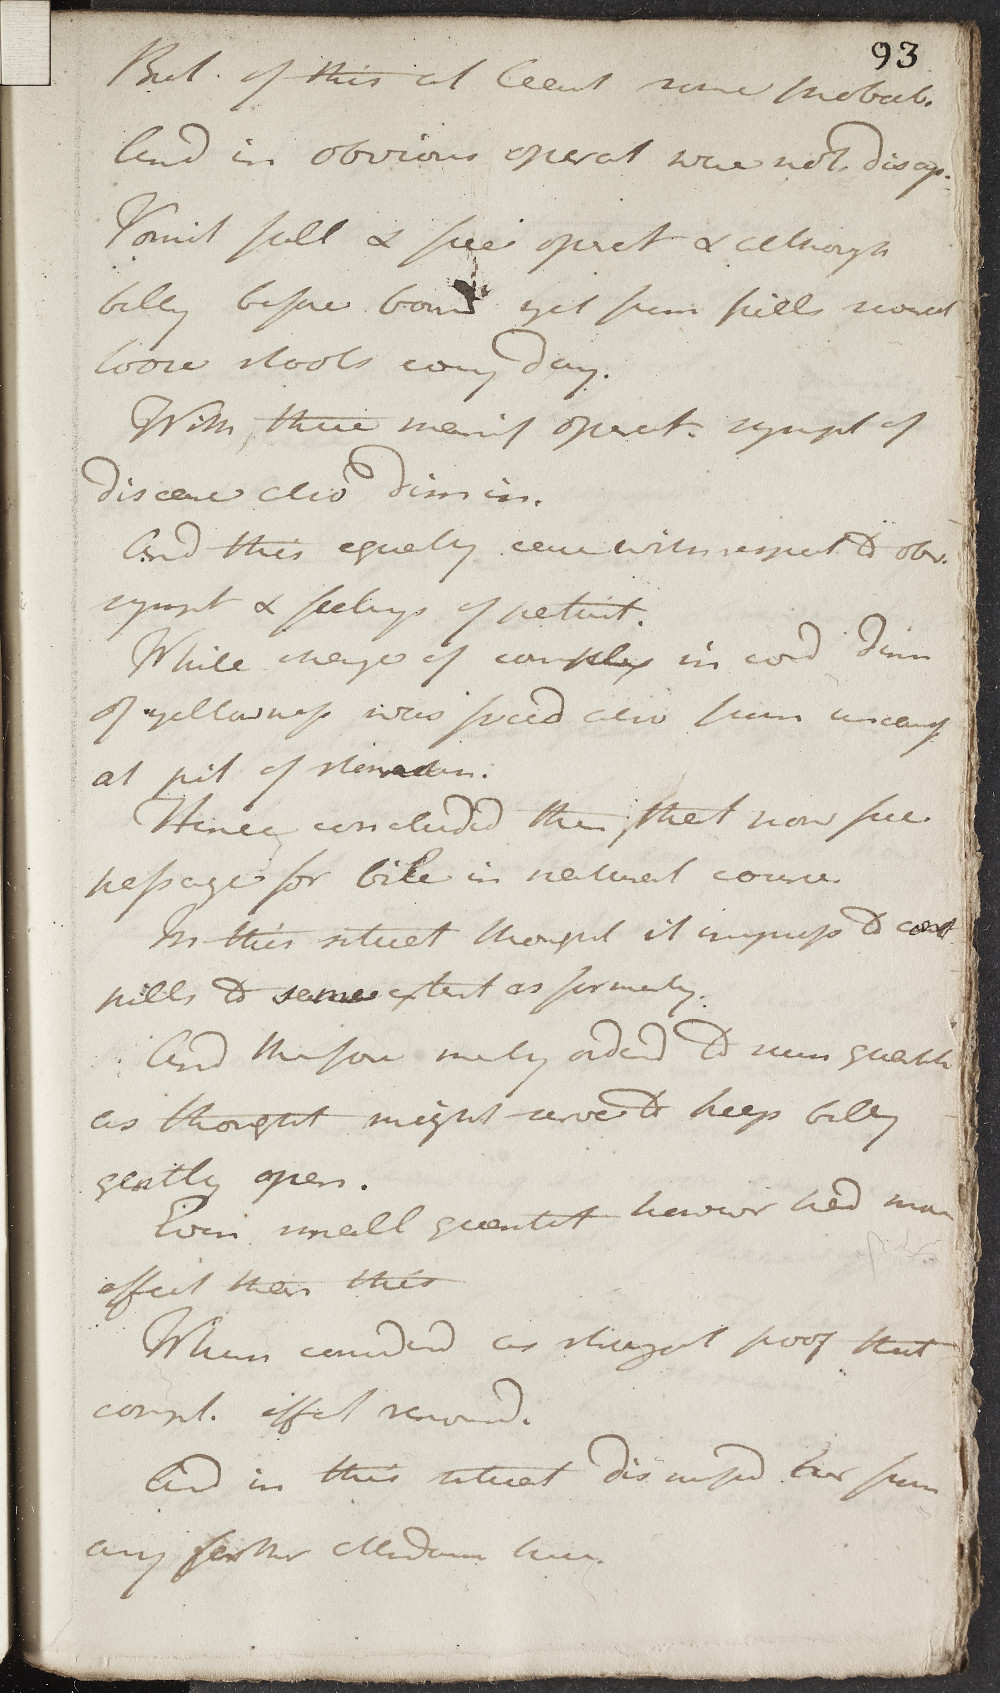 93
But of this at least some probab.
And in obvious operat were not disap.
Vomit full & free operat & although
belly before bound yet from pills several
loose stools every day.
With these manif operat. sympt of
disease also dimin.
And this equally came with respect to obv.
sympt & feelings of patient.
While change of complex in cons Dim
of yellowness was freed also from uneasy
at pit of stomach.
Hence concluded then that now free
passage for bile in natural course
In this situat thought it unnecess to cont
pills to same extent as formerly.
And therefore merely ordered to such quantit
as thought might serve to keep belly
gently open.
Even small quantit however had more
effect than this
When considered as strongest proof that
compl. effect removed.
And in this situat dismissed her from
any further attendance here.